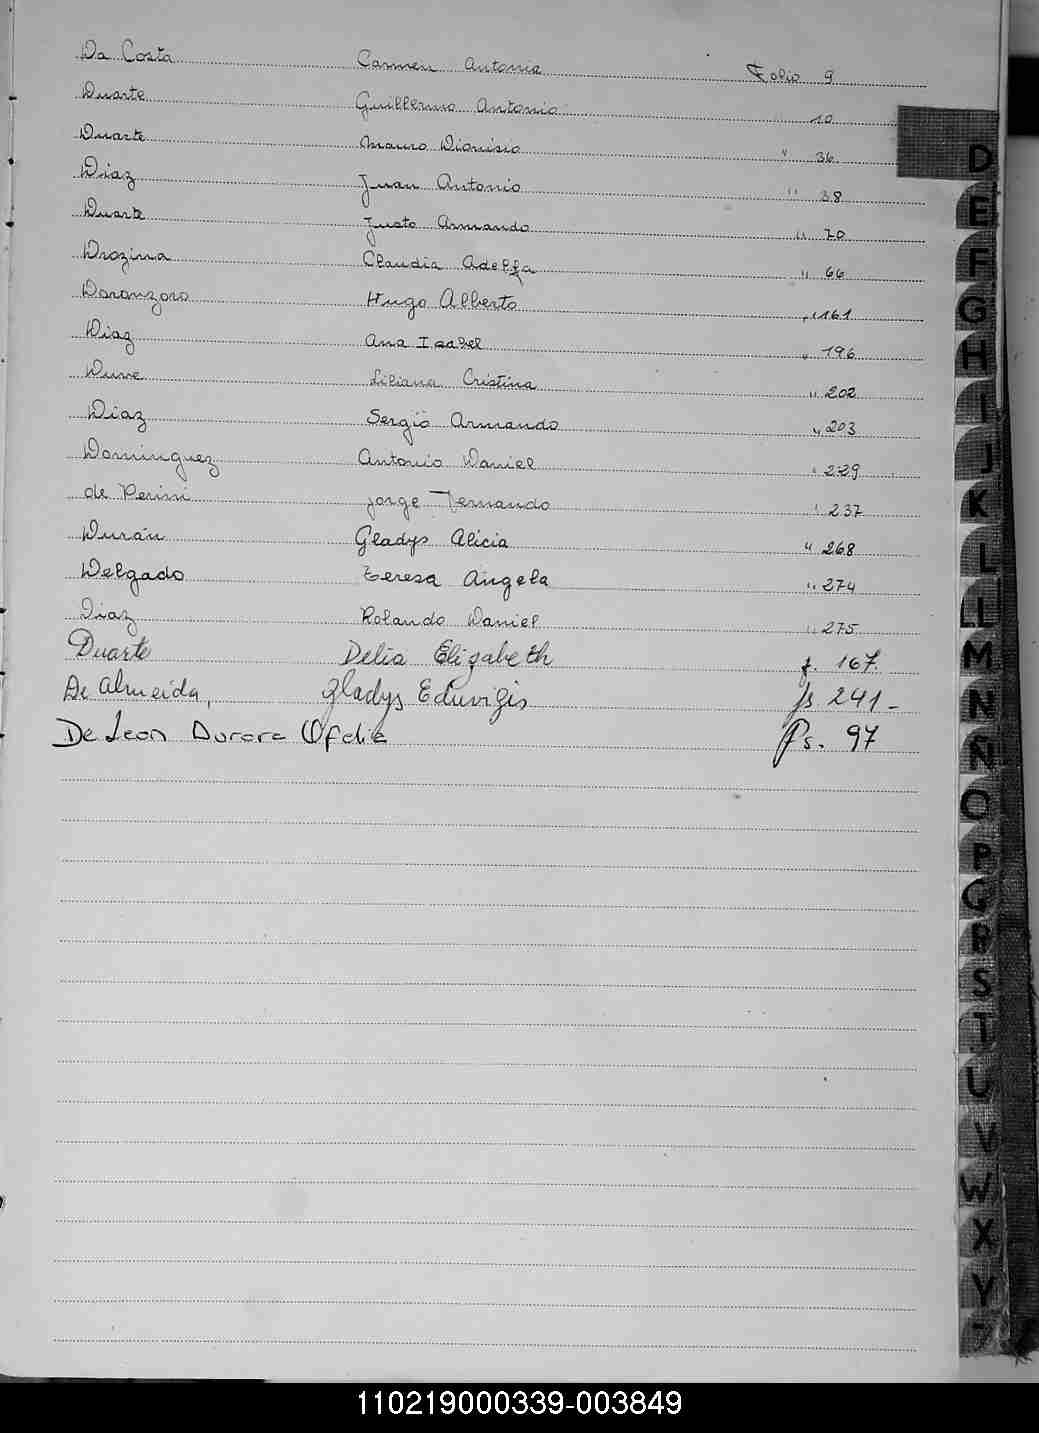 Da Costa Carmen Antonia Folio 9
Duarte Guillermo Antonio " 10
Duarte Mauro Dionisio " 36
Diaz Juan Antonio " 38
Duarte Justo Armando " 70
Drozina Claudia Adelfa " 66
Doronzoro Hugo Alberto " 161
Diaz Ana Isabel " 196
Duve Liliana Cristina " 202
Diaz Sergio Armando " 203
Dominguez Antonio Daniel " 229
de Perini Jorge Fernando " 237
Durán Gladys Alicia " 268
Delgado Teresa Angela " 274
Diaz Rolando Daniel " 275
Duarte Delia Elizabeth f. 167
De Almeida, Gladys Eduvigis fs. 241-
De Leon Aurora Ofelia Fs. 97
D
E
F
G
H
I
J
K
L
LL
M
N
Ñ
O
P
Q
R
S
T
U
V
W
X
Y
Z
110219000339-003849